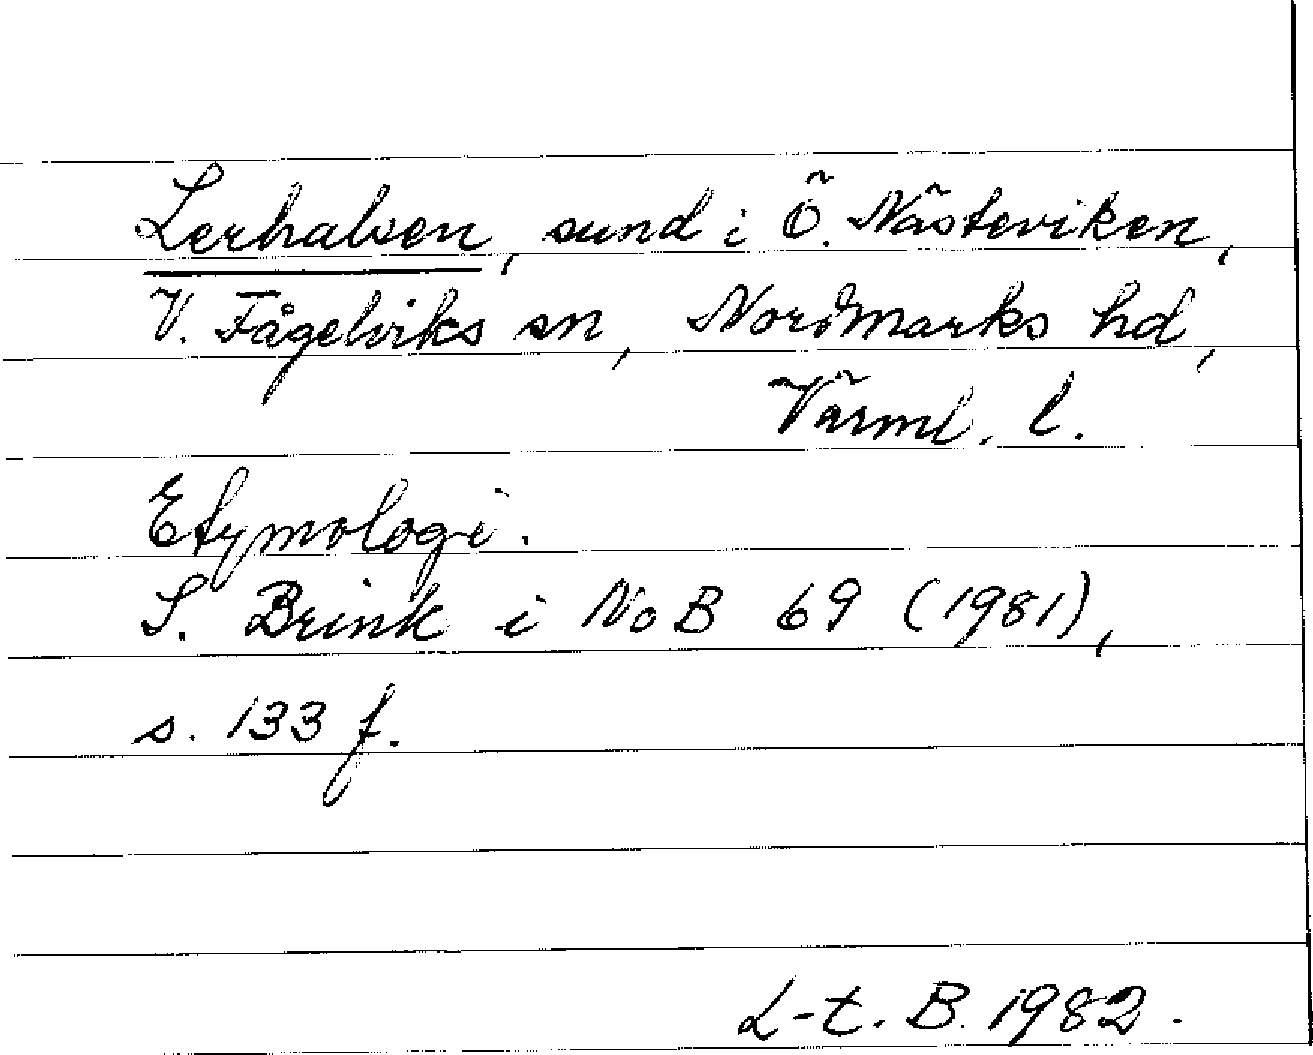 Lerhalsen, sund i Ö. Nästeviken,
V. Fågelviks sn, Nordmarks hd,
Värml. l.
Etymologi.
S. Brink i NoB 69 (1981),
s. 133 f.
L-t. B. 1982.